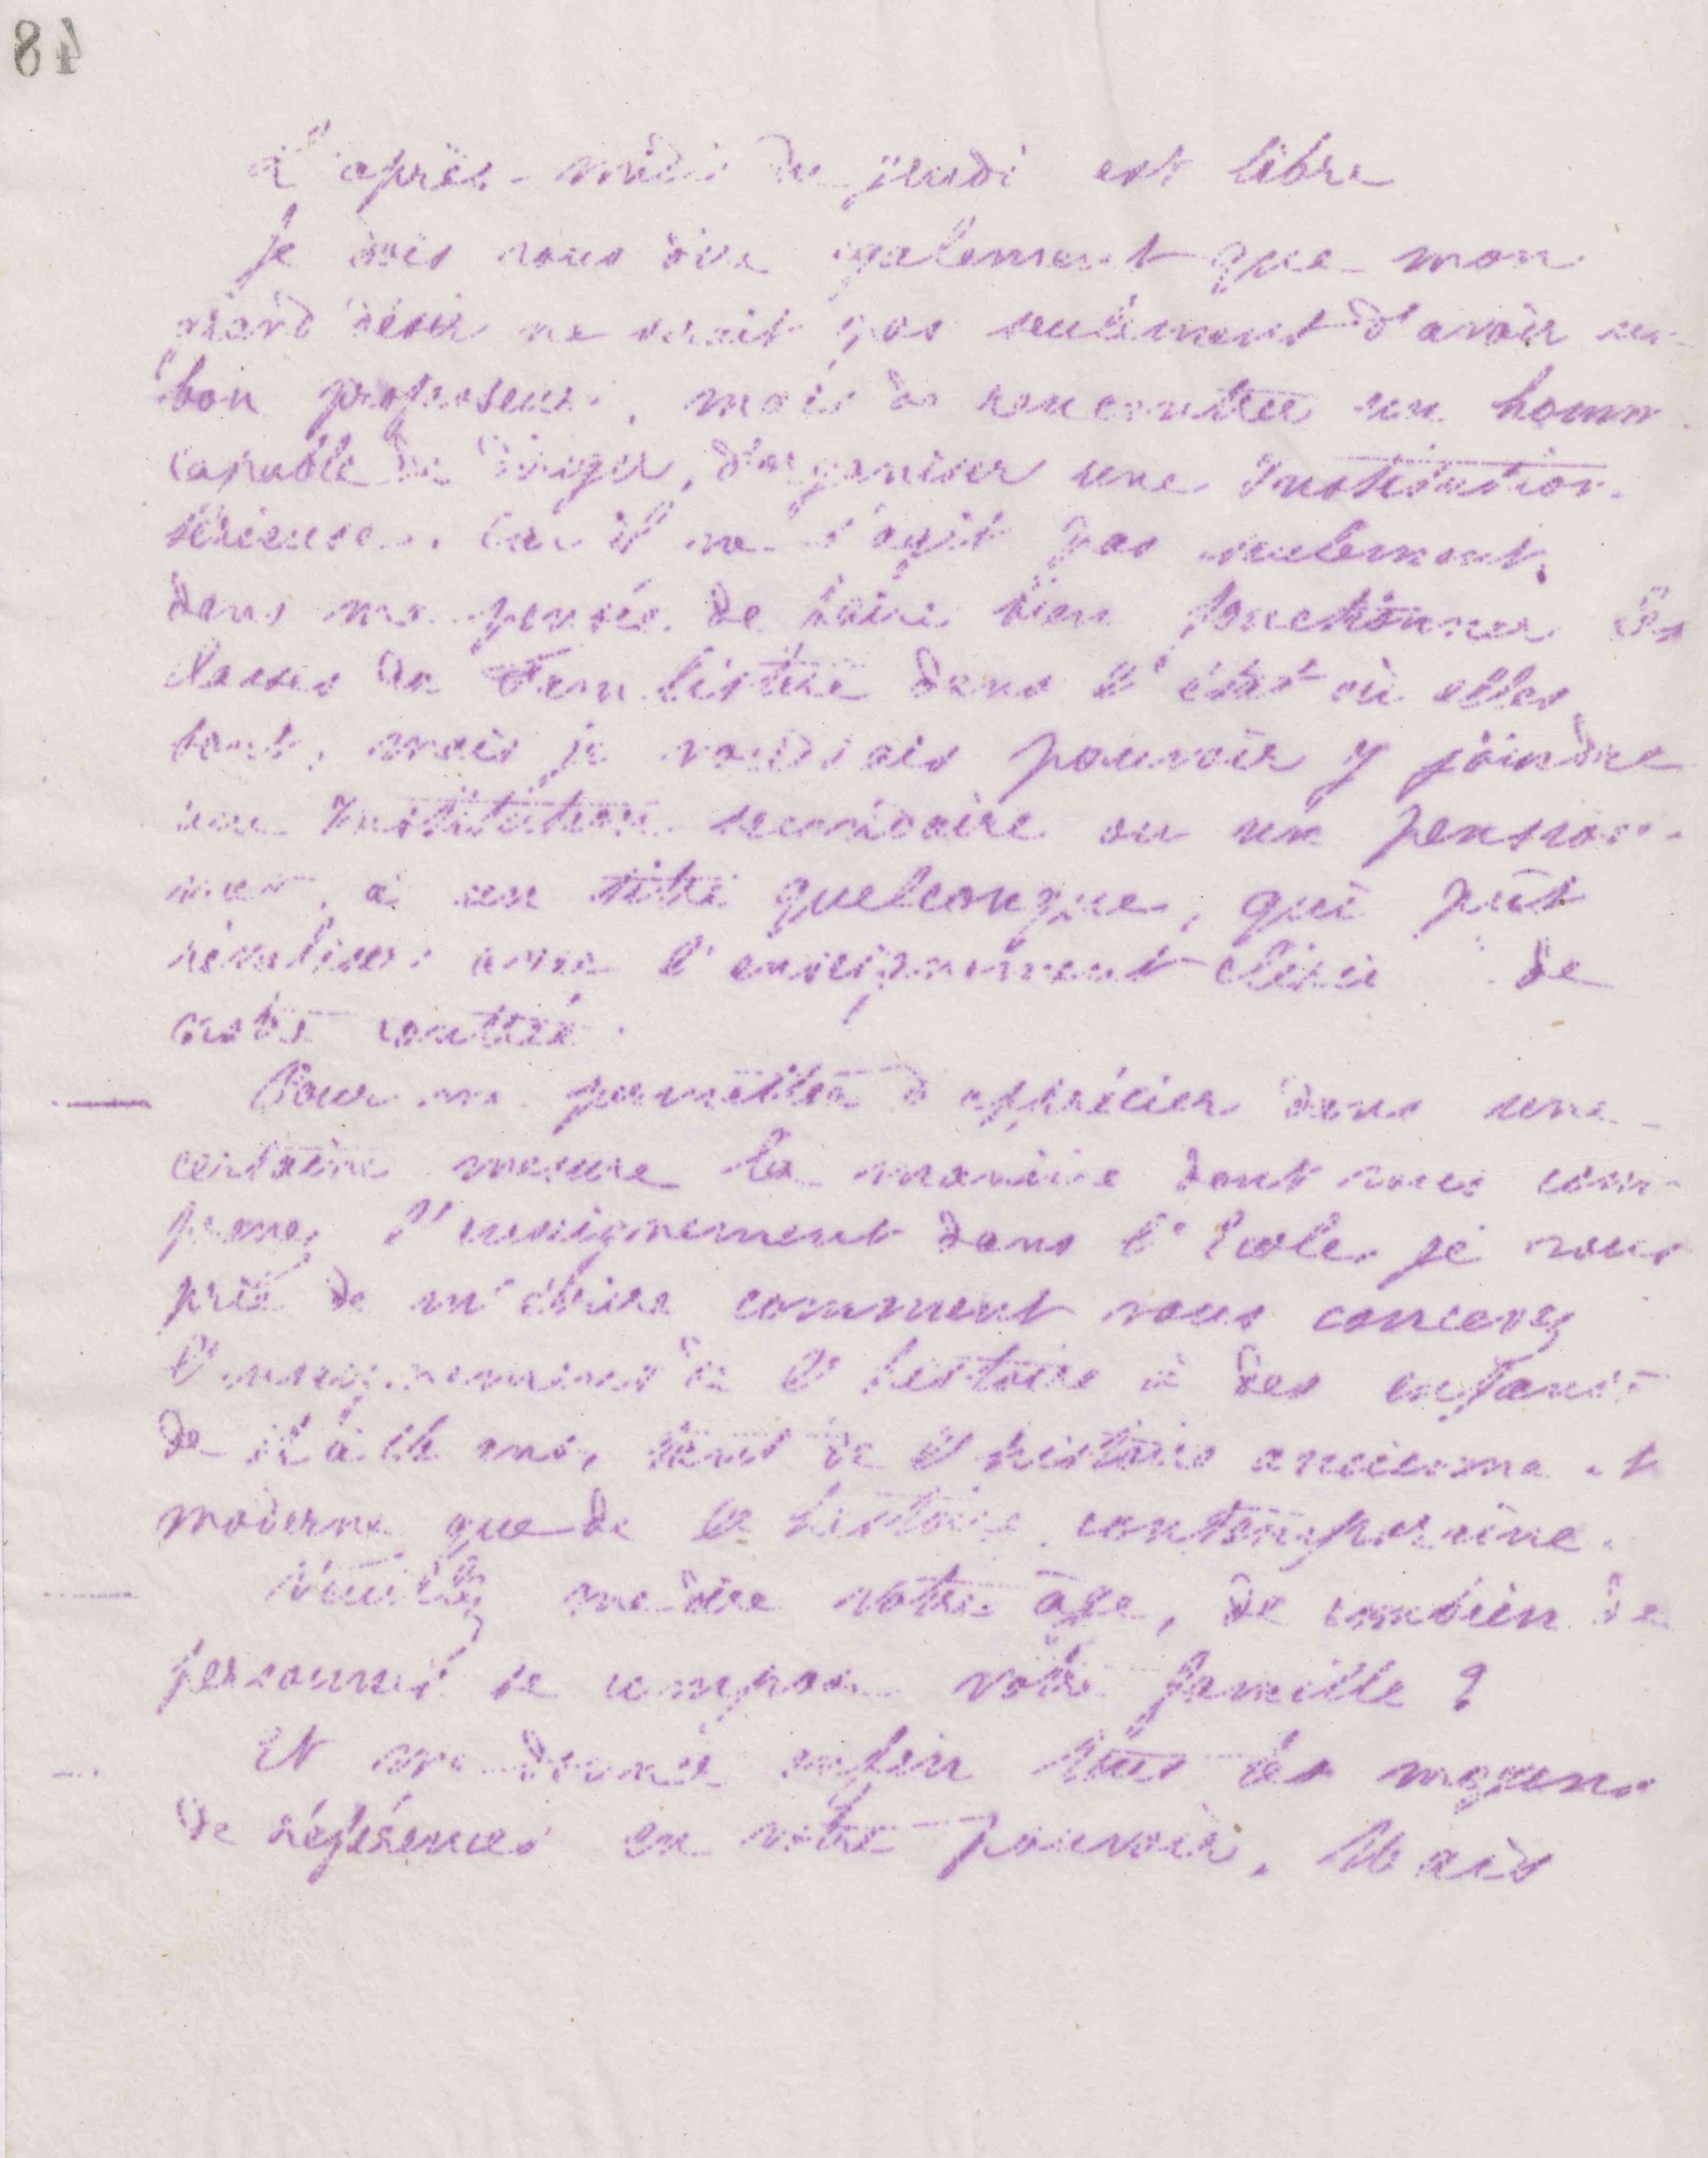 48
L'après-midi du jeudi est libre
Je dois vous dire également que mon
grand désir ne serait pas seulement d'avoir un
bon professeur, mais de rencontrer un homme
capable de diriger, d'organiser une Institution
sérieuse. Car il ne s'agit pas seulement,
dans ma pensée de faire bien fonctionner les
classes du Familistère dans l'état où elles
sont, mais je voudrais pouvoir y joindre
une Institution secondaire ou un pension-
nat, à un titre quelconque, qui pût
rivaliser avec l'enseignement clérical de
notre contrée.
Pour me permettre d'apprécier dans une
certaine mesure la manière dont vous com-
prenez l'enseignement dans l'École je vous
prie de m'écrire comment vous concevez
l'enseignement de l'histoire à des enfants
de à ans, tant de l'histoire ancienne et
moderne que de l'histoire contemporaine.
Veuillez me dire votre âge, de combien de
personnes se compose votre famille ?
Et me donner enfin tous les moyens
de références en votre pouvoir. Mais